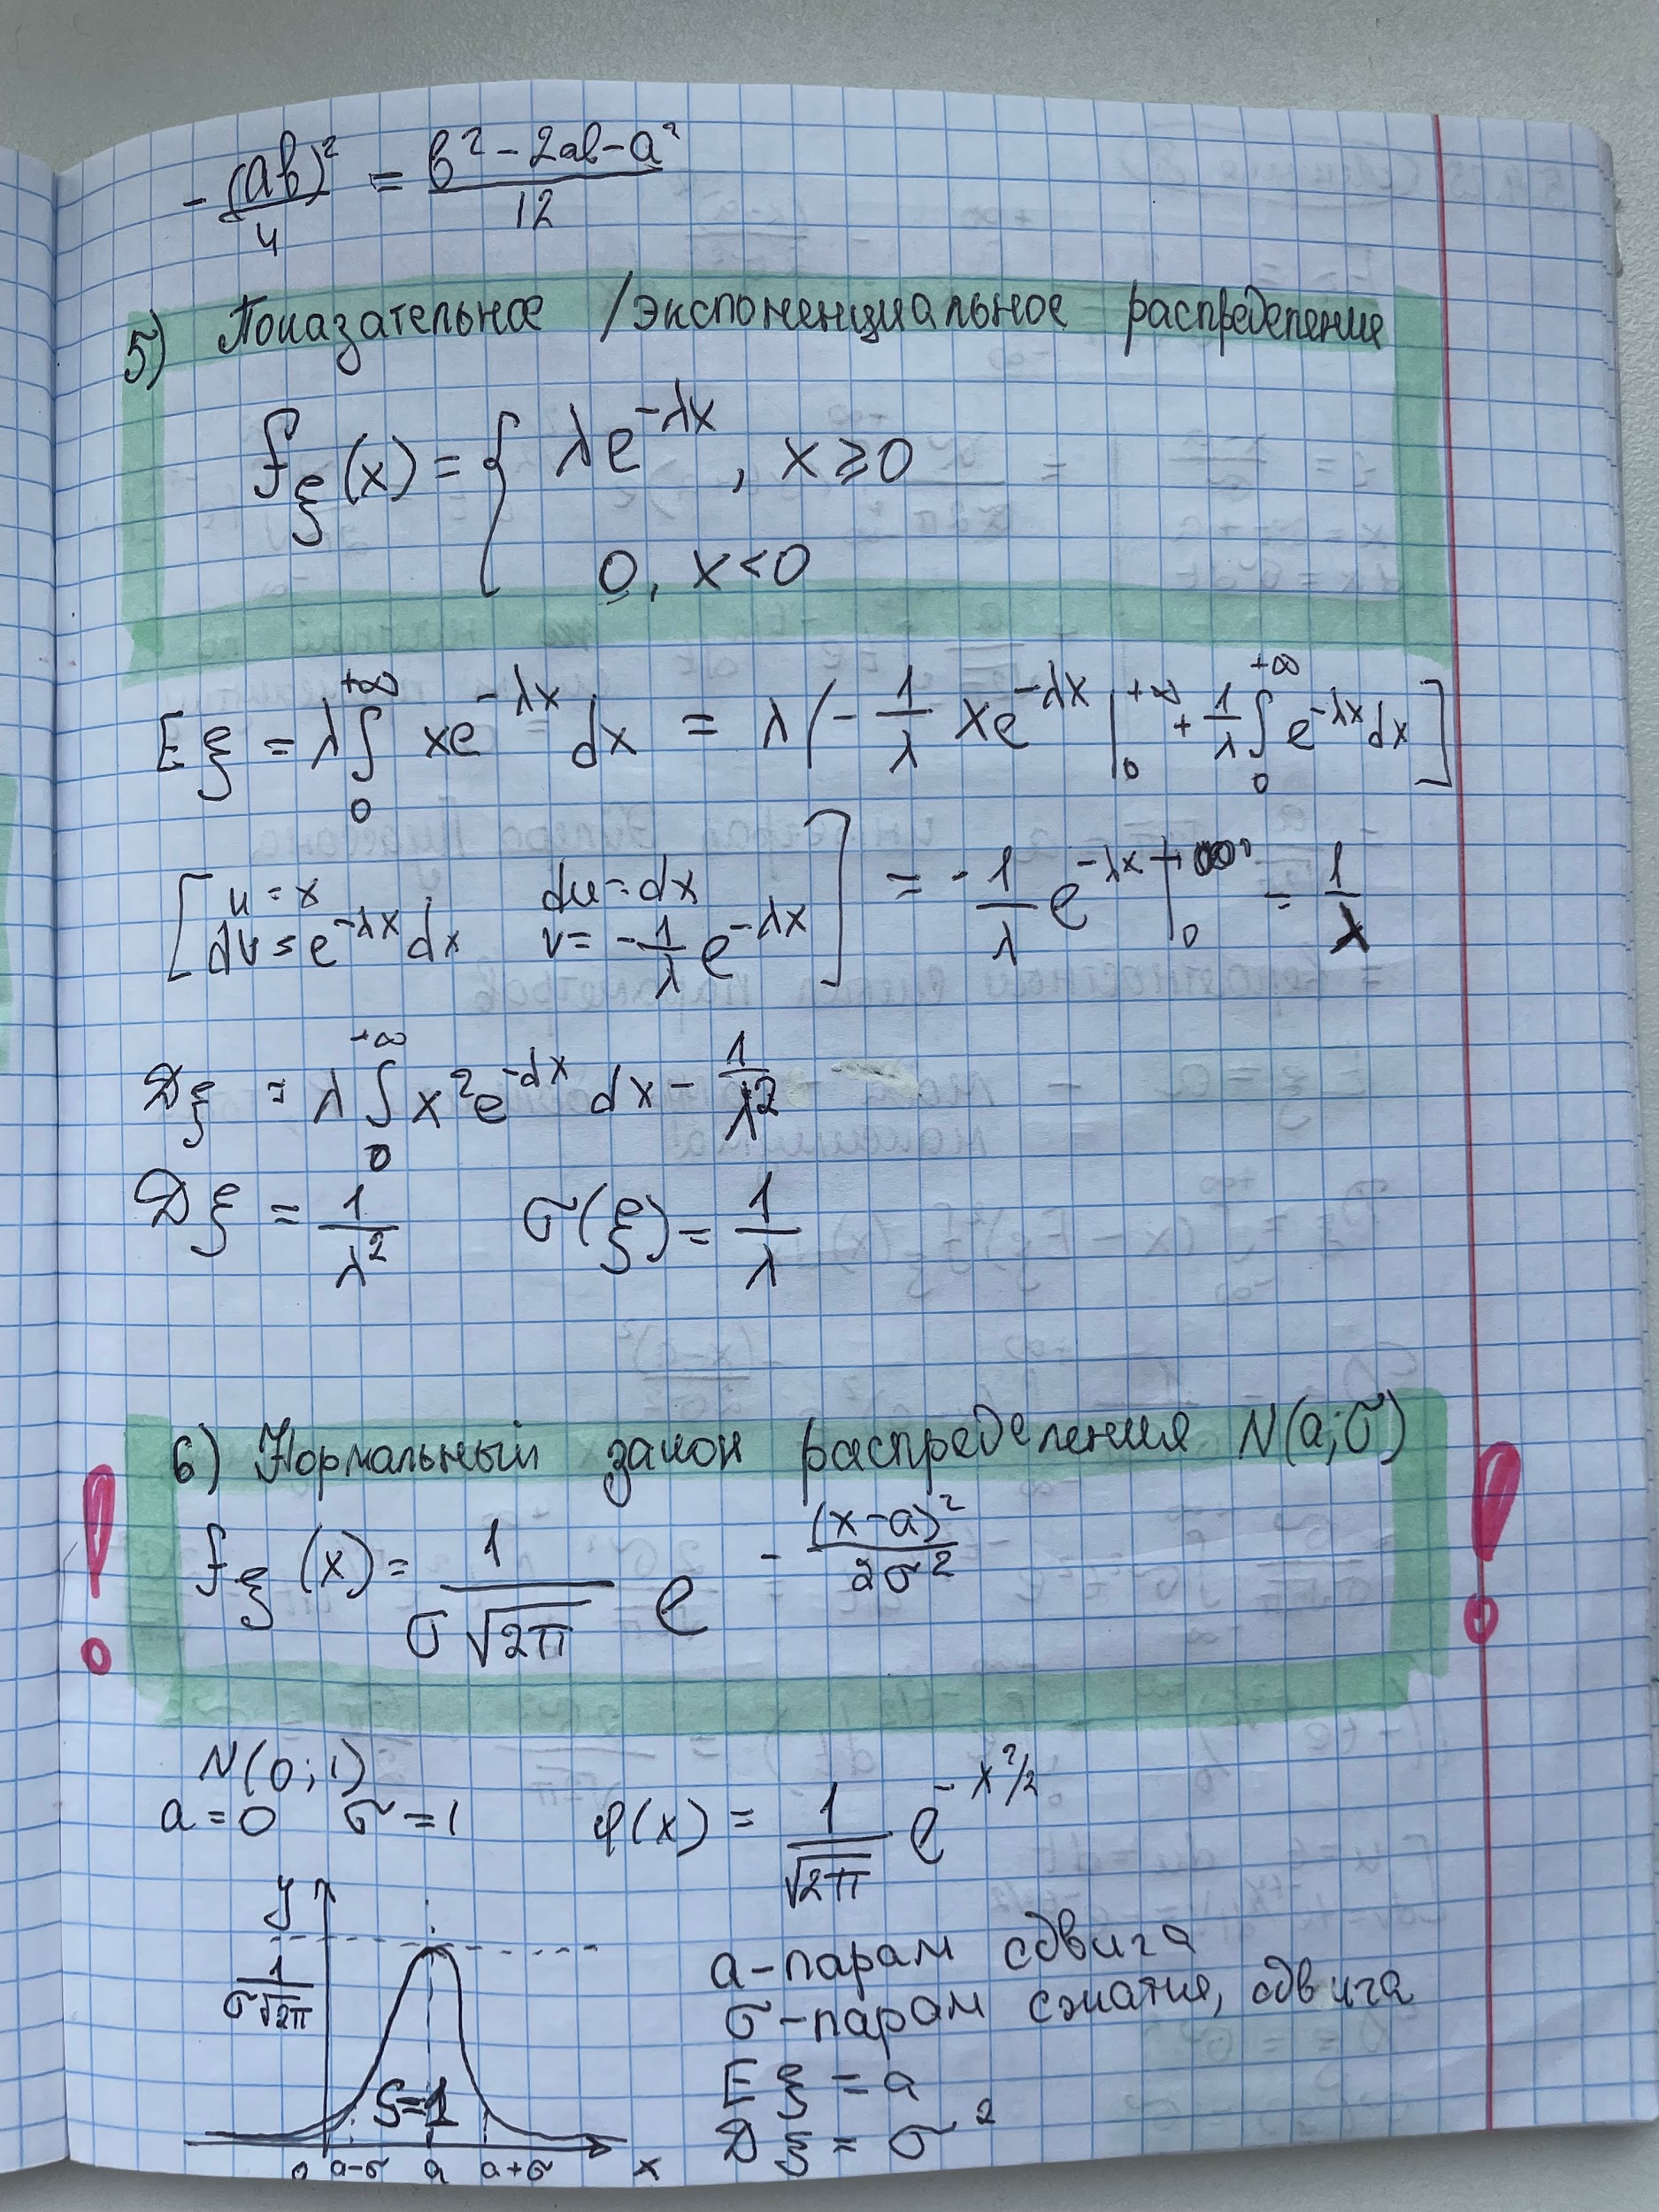 - (ab)²/4 = (b² - 2ab - a²)/12
5) Показательное / экспоненциальное распределение
f_ξ(x) = { λe^(-λx), x ⩾ 0
0, x < 0
Eξ = λ ∫_0^(+∞) xe^(-λx) dx = λ( - 1/λ xe^(-λx) |_0^(+∞) + 1/λ ∫_0^(+∞) e^(-λx) dx ]
[ u = x du = dx
dv = e^(-λx) dx v = - 1/λ e^(-λx) ] = - 1/λ e^(-λx) |_0^(+∞) = 1/λ
Dξ = λ ∫_0^(+∞) x² e^(-dx) dx - 1/λ²
Dξ = 1/λ² σ(ξ) = 1/λ
6) Нормальный закон распределения N(a; σ)
! f_ξ(x) = 1/(σ√2π) e^(-(x-a)²/2σ²) !
N(0; 1)
a = 0 σ = 1 φ(x) = 1/√2π e^(-x²/2)
y
1/(σ√2π)
S=1
0 a-σ a a+σ x
a - парам сдвига
σ - парам сжатия, сдвига
Eξ = a
Dξ = σ²